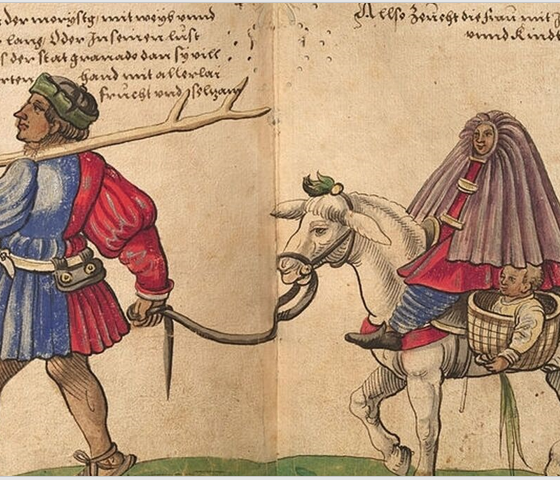 der moryßg mit weyb unnd
lang Oder In seinen lust
s der stat granado dan sy vill
rten hand mit allerlai
frucht und selzam
Allso Zeucht die frau mit
unnd Kindt